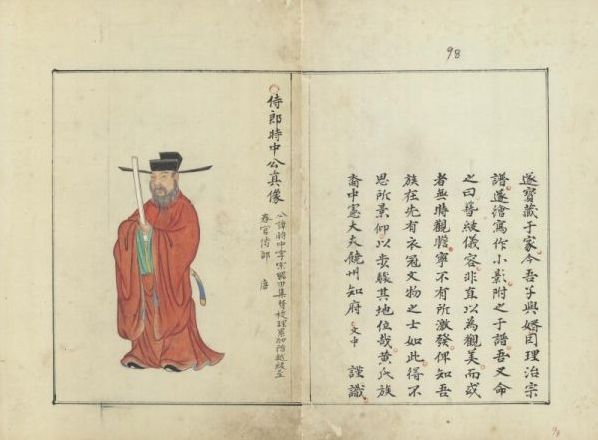 98
遂寶藏于家今吾子與婿因理治宗
譜遂繪寫作小影附之于譜吾又命
之曰紱儀容非直以為觀美而或
者與時觀覽寧不有所激發俾知吾
族在先有衣冠文物之士如此得不
思所景仰以委其地位哉黃氏族
裔中憲大夫饒州知府 文中 謹識
侍郎特中公真像
公諱特中字宗田集賢校理累加階越級至
春官侍郎 唐